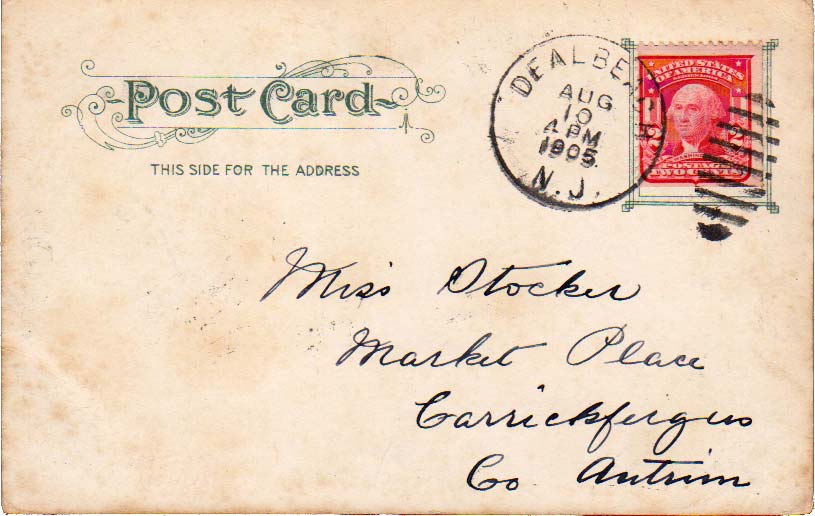 Post Card
THIS SIDE FOR THE ADDRESS
DEAL BEACH
AUG
10
4 PM
1905
N.J.
UNITED STATES
OF AMERICA
POSTAGE
TWO CENTS
Miss Stocker
Market Place
Carrickfergus
Co Antrim